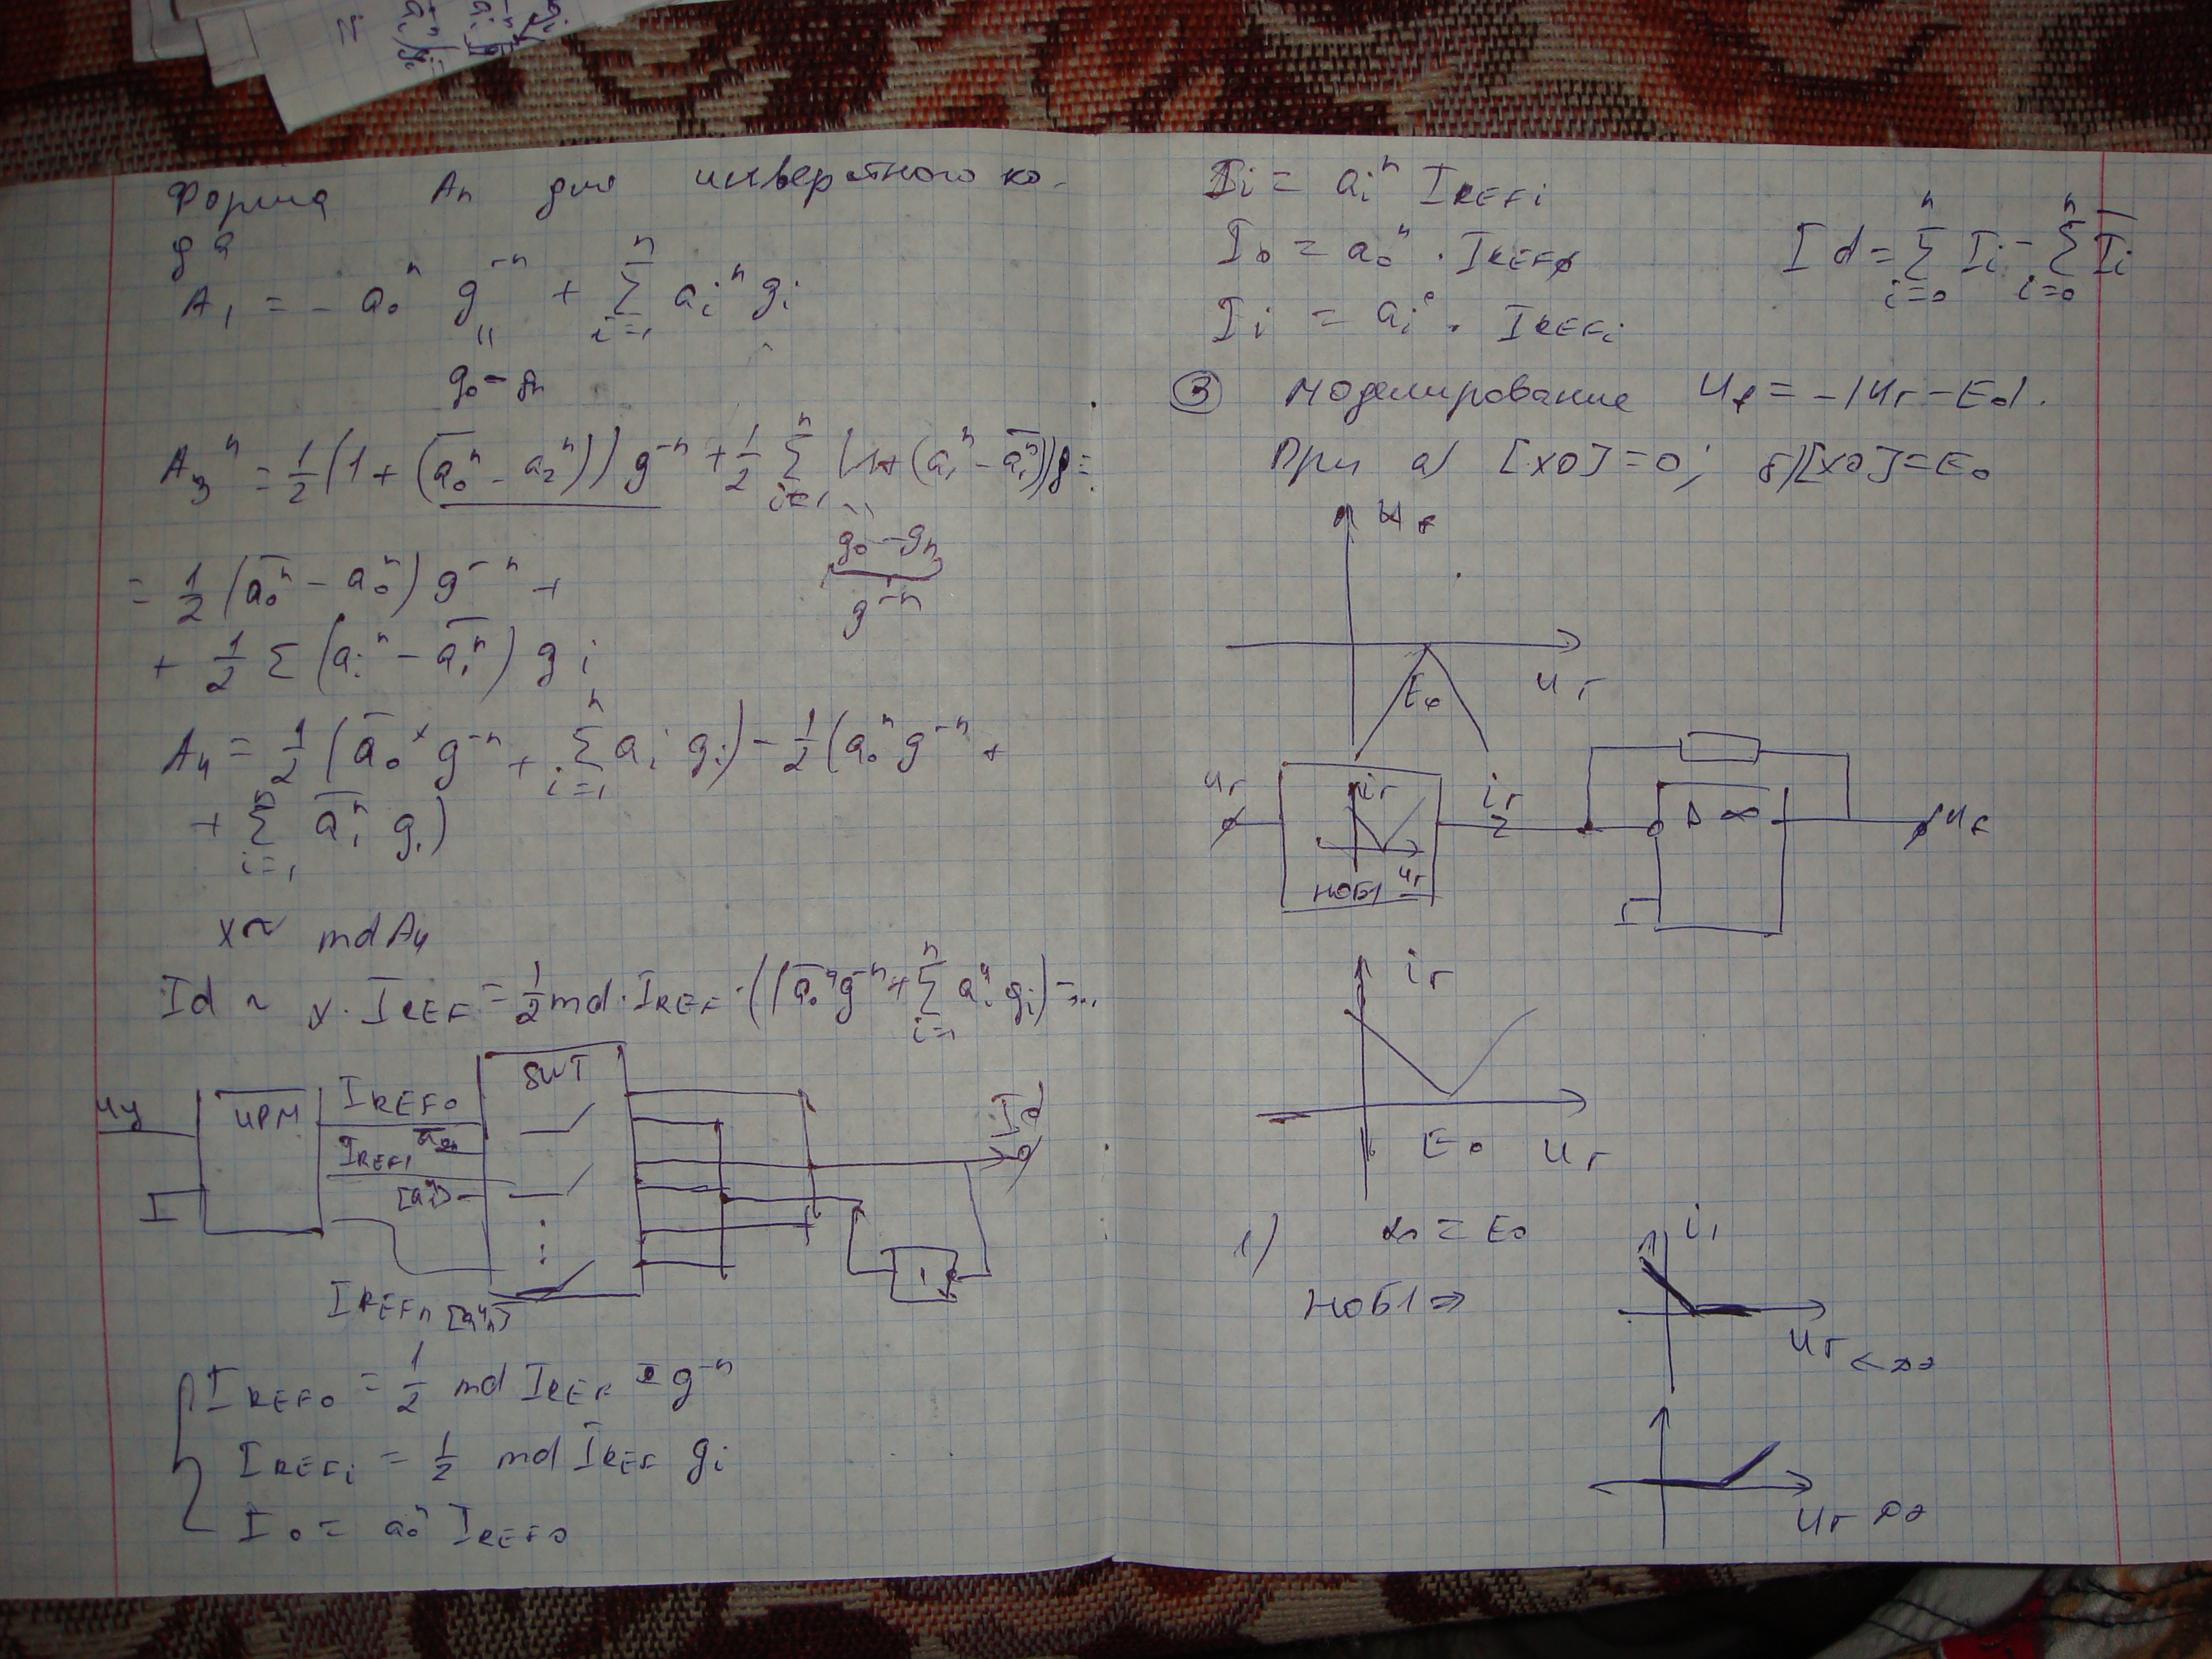 Форма Aₙ для инверсного ко-
да
A₁ = - a₀ⁿ g⁻ⁿ + Σ aᵢⁿ gᵢ
n
i=1
"
g₀-gₙ
A₃ⁿ = 1/2 (1 + (a̅₀ⁿ - a₂ⁿ)) g⁻ⁿ + 1/2 Σ (1+(aᵢⁿ - a̅ᵢⁿ))g =
n
i=1
g₀-gₙ
g⁻ⁿ
= 1/2 (a̅₀ⁿ - a₀ⁿ) g⁻ⁿ +
+ 1/2 Σ (aᵢⁿ - a̅ᵢⁿ) gᵢ
A₄ = 1/2 (a̅₀ g⁻ⁿ + Σ aᵢ gᵢ) - 1/2 (a₀ⁿ g⁻ⁿ +
n
i=1
+ Σ a̅ᵢⁿ gᵢ)
n
i=1
x ~ md A₄
Id ~ x · I REF = 1/2 md · I REF · ((a̅₀ⁿ g⁻ⁿ + Σ aᵢⁿ gᵢ) = ...
n
i=1
SWT
ИРМ
I REF0
I REF1
[aⁿ]
I REFn [aⁿₙ]
Id
1
I REF0 = 1/2 md I REF g⁻ⁿ
I REFi = 1/2 md I REF gᵢ
I₀ = a₀ⁿ I REF0
Iᵢ = aᵢⁿ I REFi
I₀ = a₀ⁿ · I REF0
Iᵢ = aᵢ · I REFi
Id = Σ Iᵢ - Σ I̅ᵢ
n n
i=0 i=0
③ Моделирование Uf = -|Ur - E₀|.
При а) [x0] = 0; б) [x0] = E₀
Uf
E₀
Ur
Ur
ir
Ur
НОБ1
ir
Σ
▷ ∞
Uf
ir
E₀ Ur
1) x₀ = E₀
НОБ1 ⇒
i₁
Ur < x₀
Ur x₀